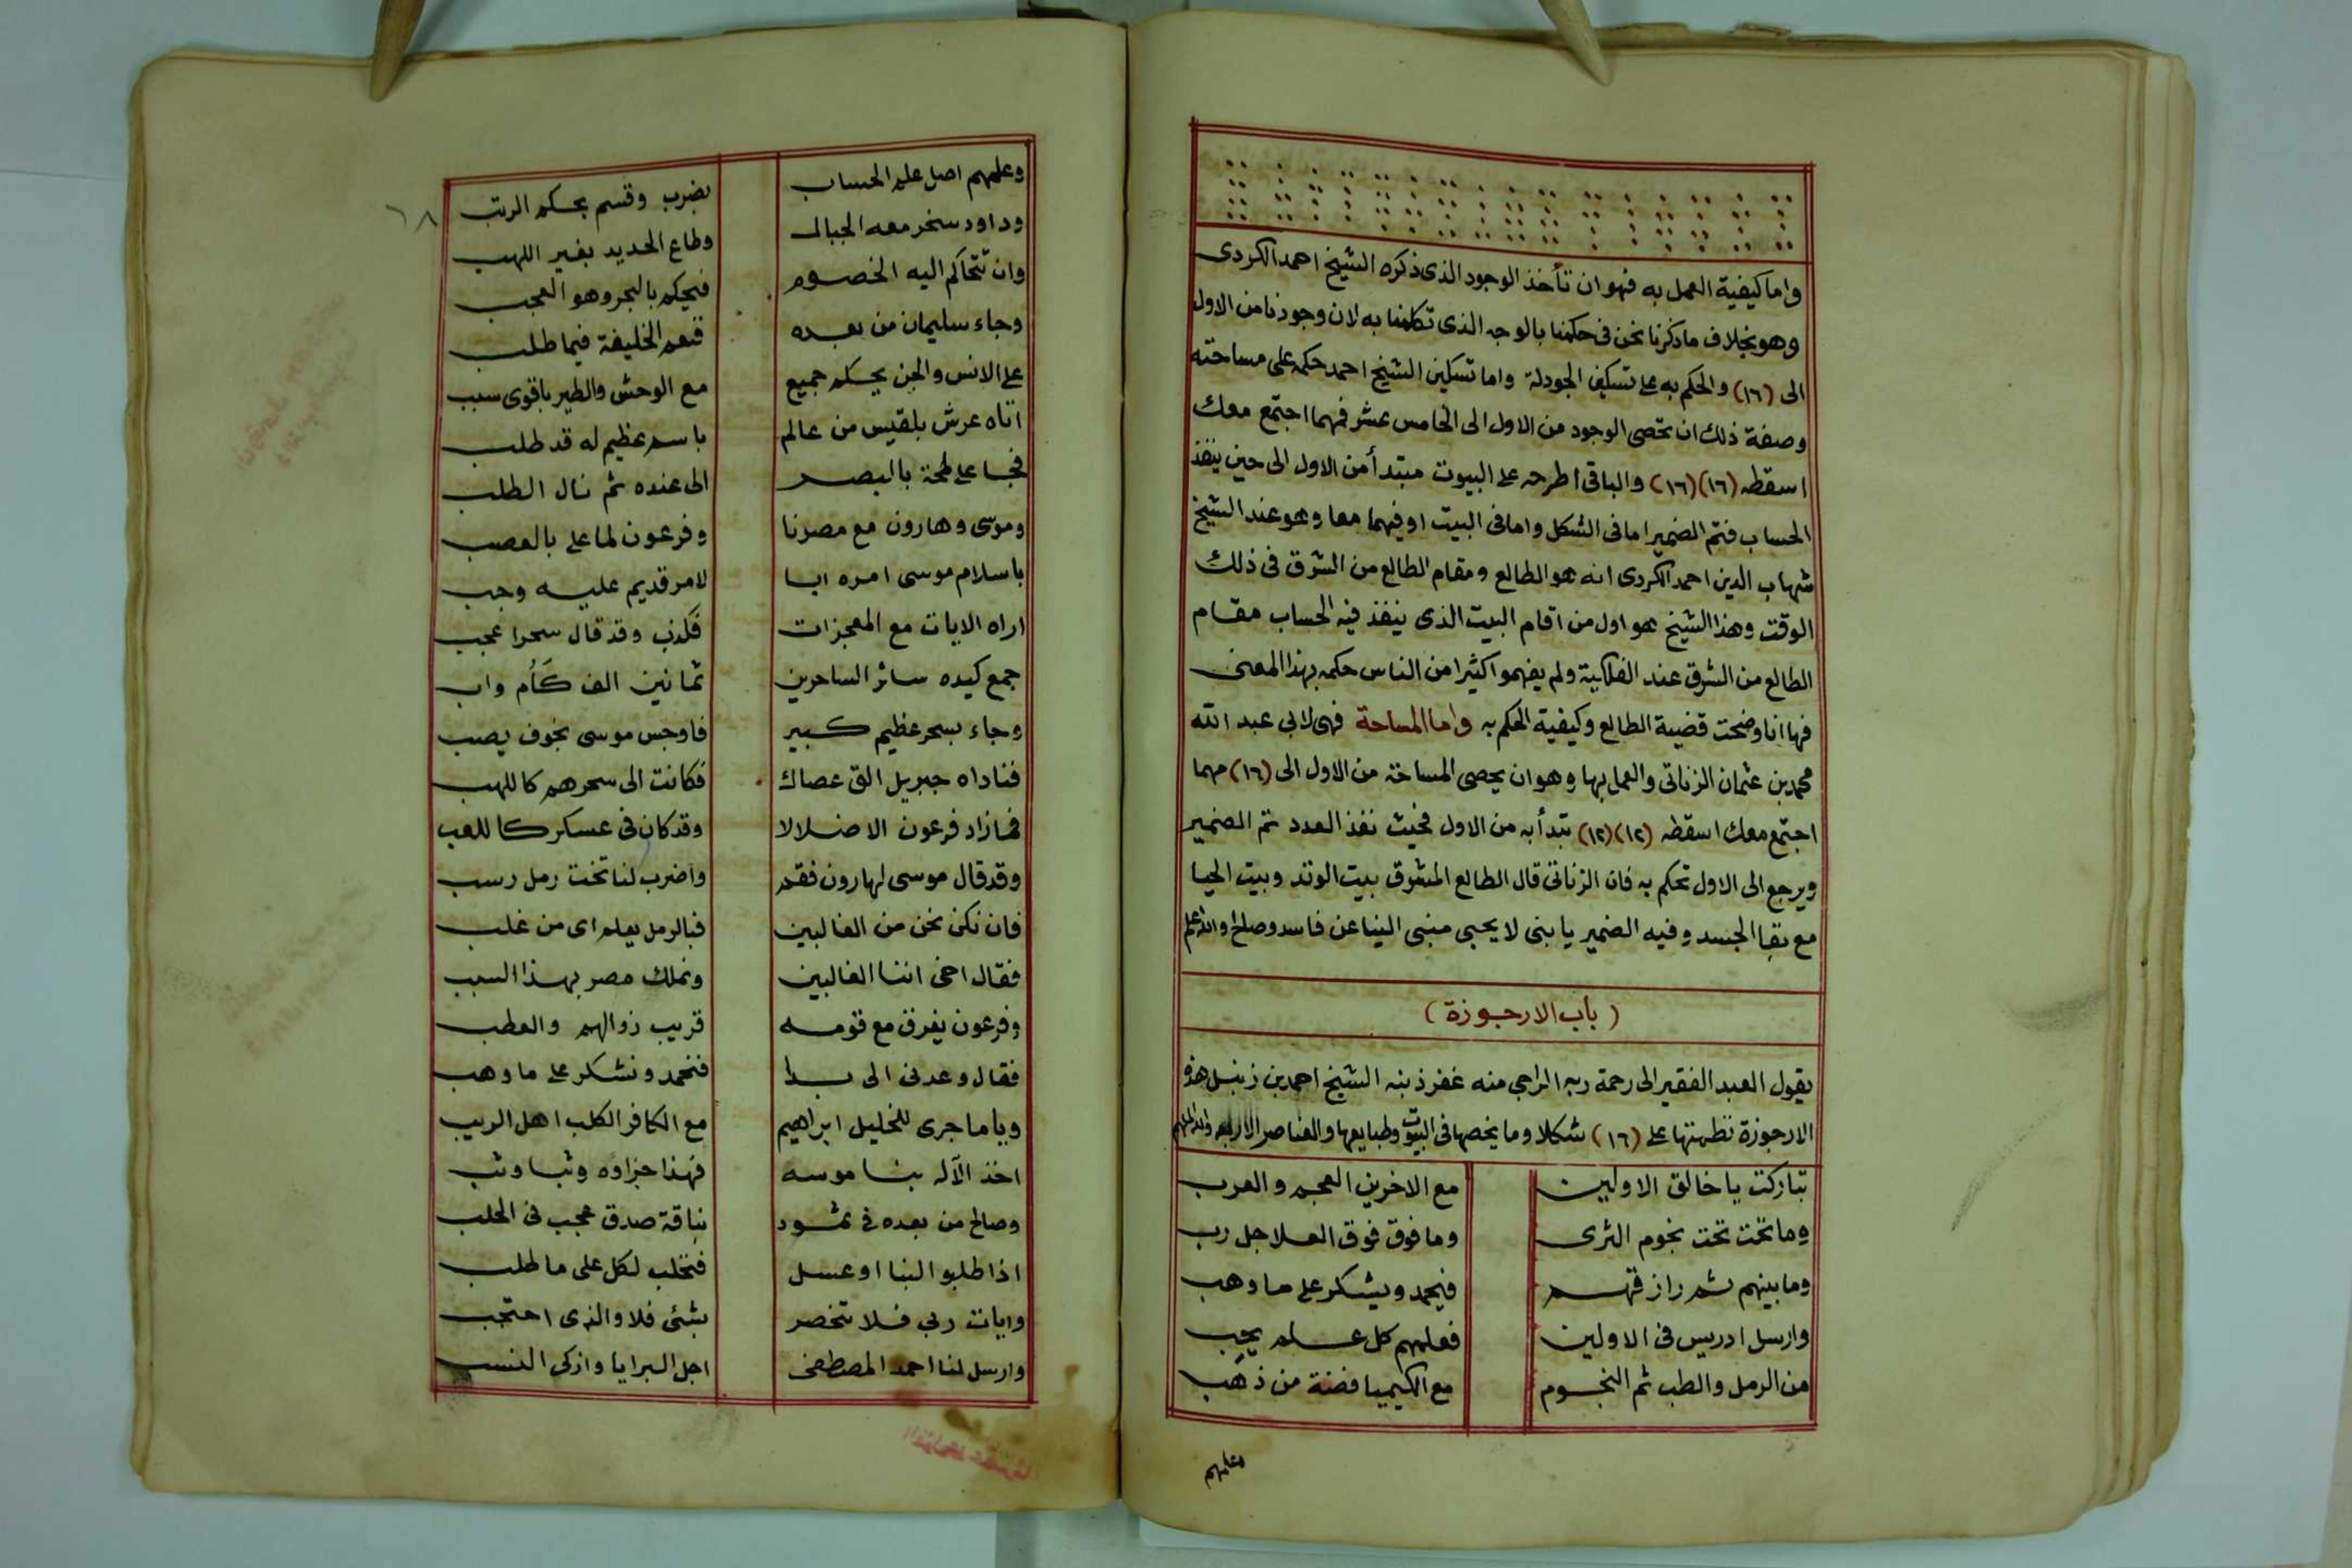 واما كيفية العمل به فهو ان تأخذ الوجود الذى ذكره الشيخ احمد الكردى
وهو بخلاف ما ذكرنا نحن فى حكمنا بالوجه الذى تكلمنا به لان وجودنا من الاول
الى (١٦) والحكم به على تسكين الجودلة واما تسكين الشيخ احمد حكمه على مساحته
وصفة ذلك ان تحصى الوجود من الاول الى الخامس عشر فمهما اجتمع معك
اسقطه (١٦) (١٦) والباقى اطرحه على البيوت مبتدأ من الاول الى حين ينفذ
الحساب فتم الضمير اما فى الشكل واما فى البيت او فيهما معا وهو عند الشيخ
شهاب الدين احمد الكردى انه هو الطالع ومقام الطالع من الشرق فى ذلك
الوقت وهذا الشيخ هو اول من اقام البيت الذى ينفذ فيه الحساب مقام
الطالع من الشرق عند الفلكية ولم يفهموا كثيرا من الناس حكمه بهذا المعنى
فها انا وضحت قضية الطالع وكيفية الحكم به واما المساحة فهى لابى عبد الله
محمد بن عثمان الزناتى والعمل بها وهو ان يحصى المساحة من الاول الى (١٦) مهما
اجتمع معك اسقطه (١٢) (١٢) تبدأ به من الاول فحيث نفذ العدد تم الضمير
ويرجع الى الاول تحكم به فان الزناتى قال الطالع المشرق بيت الوتد وبيت الحيا
مع بقا الجسد وفيه الضمير يا بنى لا يحبى منبى النبا عن فاسد وصلح والله اعلم
(باب الارجوزة)
يقول العبد الفقير الى رحمة ربه الراجى منه غفر ذنبه الشيخ احمد بن زنبل هذه
الارجوزة نظمتها على (١٦) شكلا وما يخصها فى البيوت وطبايعها والعناصر الاربعه والله الملهم
تباركت يا خالق الاولين مع الاخرين العجم والعرب
وما تحت تحت نجوم الثرى وما فوق فوق العلا جل رب
وما بينهم ثم رازقهم فيحمد ويشكر على ما وهب
وارسل ادريس فى الاولين فعلمهم كل علم يجب
من الرمل والطب ثم النجوم مع الكيميا فضة من ذهب
وعلمهم
٦٨
وعلمهم اصل علم الحساب بضرب وقسم بحكم الرتب
وداود سخر معه الجبال وطاع الحديد بغير اللهب
وان تتحاكم اليه الخصوم فيحكم بالبحر وهو العجب
وجاء سليمان من بعده فنعم الخليفة فيما طلب
على الانس والجن يحكم جميع مع الوحش والطير باقوى سبب
اتاه عرش بلقيس من عالم باسم عظيم له قد طلب
فجا على لمحة بالبصر الى عنده ثم نال الطلب
وموسى وهارون مع مصرنا وفرعون لما على بالعصب
باسلام موسى امره ابا لامر قديم عليه وجب
اراه الايات مع المعجزات فكذب وقد قال سحرا عجب
جمع كيده سائر الساحرين ثمانين الف كأم واب
وجاء بسحر عظيم كبير فاوجس موسى بخوف يصب
فناداه جبريل الق عصاك فكانت الى سحرهم كاللهب
فما زاد فرعون الا ضلالا وقد كان فى عسكر كاللعب
وقد قال موسى لهارون فقم واضرب لنا تخت رمل رسب
فان نكن نحن من الغالبين فبالرمل يعلم اى من غلب
فقال اخى اننا الغالبين ونملك مصر بهذا السبب
وفرعون يغرق مع قومه قريب زوالهم والعطب
فقال وعدنى الى بدا فنحمد ونشكر على ما وهب
ويا ما جرى للخليل ابراهيم مع الكافر الكلب اهل الريب
اخذ الآله بنا موسه فهذا جزاؤه وثبا وثب
وصالح من بعده فى ثمود بناقة صدق عجب فى الحلب
اذا طلبو البنا او عسل فتحلب لكل على ما طلب
وايات ربى فلا تنحصر بشئ فلا والذى احتجب
وارسل لنا احمد المصطفى اجل البرايا وازكى النسب